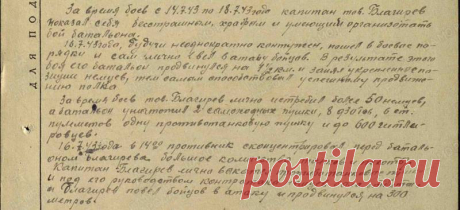 За время боев с 14.7.43 по 18.7.43 года капитан тов. Благирев
показал себя бесстрашным, храбрым и умеющим организовать
бой батальона.
16.7.43 года, будучи неоднократно контужен, пошел в боевых по-
рядках и сам лично вел в атаку бойцов. В результате этого
боя его батальон продвинулся на км. и занял укрепленные по-
зиции немцев, тем самым способствовал успешному продвиже-
нию полка.
За время боев тов. Благирев лично истребил более 50 немцев,
а батальон уничтожил 2 самоходных пушки, 8 дзотов, 6 ст.
пулеметов одну противотанковую пушку и до 600 гитле-
ровцев.
16.7.43 года в 14 противник сконцентрировал перед баталь-
оном Благирева большое
Капитан Благирев лично
и под его руководством
и Благирев повел бойцов в атаку и продвинулся на 300
метров.
ДЛЯ ПОД
postila.ru